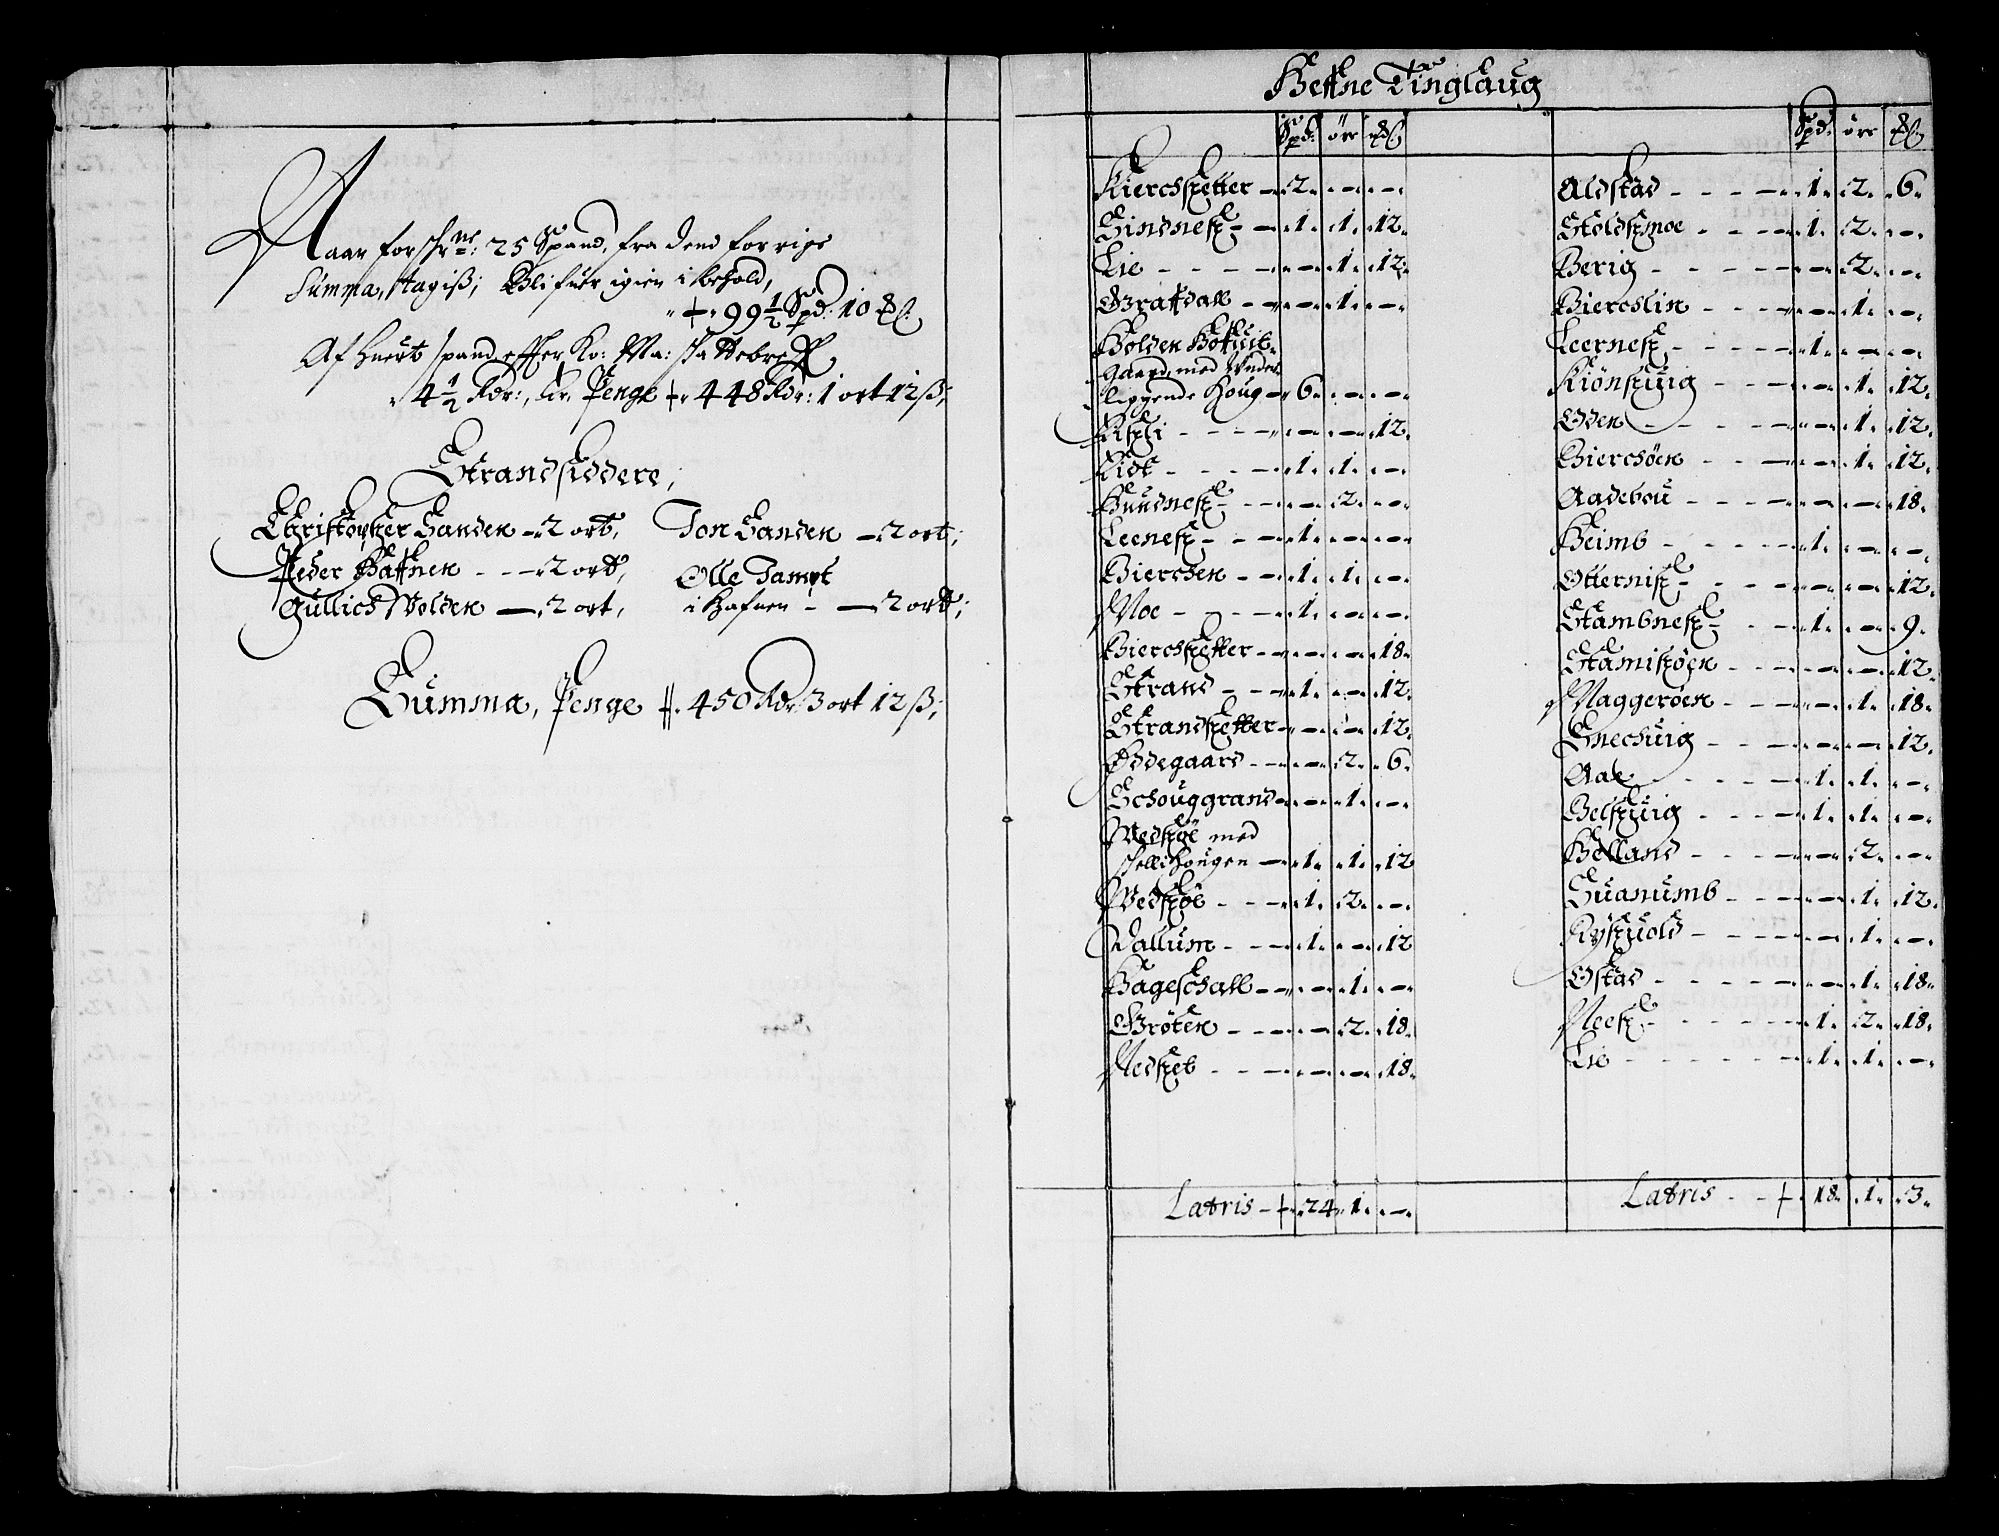 Naar forschrne: 25 Spand, fra dend forrige
Summa, tagis; Blifuer igien i behold,
99 1/2 Spd: 10 mkl.
Af huert spand effter Ko: Ma: skattebref
4 1/2 Rdr:, er, Penge 448 Rdr: 1 ort 12 ß;
Strandsiddere;
Christopher Sanden — 2 ort, Jon Sanden — 2 ort;
Peder Haffnen - - - 2 ort, Olle Tampt
Gullich Wolden — 2 ort, i Hafnen - — 2 ort;
Summa, Penge 450 Rdr 3 ort 12 ß;
Heffne Tinglaug
Spd: öre mkl
Kierchsetter 2 - -
Sindnes 1 1 12
Lie - 1 12
Graffdall - 1 -
Holden
Gaard med Under
liggende Houg 6 - -
- - 12
1 1 -
Hundnes - 2 -
Leenes 1 - -
Bierchen 1 1 -
Moe 1 - -
Bierchsetter - - 18
Strand 1 - 12
Strandsetter - - 12
Ødegaard - 2 6
Schouggrand - 1 -
Wedsøe med
schellihougen 1 1 12
Wedsøe 1 2 -
Dallum 1 - 12
Hageschall - 1 -
Gröten - 2 18
Nedset - - 18
Latris 24 1 -
Spd: öre mkl
Aldstad 1 2 6
Stoldsmoe 1 2 -
Berig - 2 -
Bierchlin - 1 -
Leernes 1 - -
Kiönsuig - 1 12
Oden - 1 12
Bierchöen - 1 12
Aadebou - - 18
Heimb 1 - -
Otternis - - 12
Stambnes 1 - 9
Stamisöen - - 12
Maggeröen - 1 18
Snechuig - - 12
Aae 1 1 -
Belsuig 1 1 -
Helland - 2 -
Suanumb - 1 12
Rysuold - 1 -
Ostad - 1 18
Nees 1 2 18
Lie 1 1 -
Latris 18 1 3